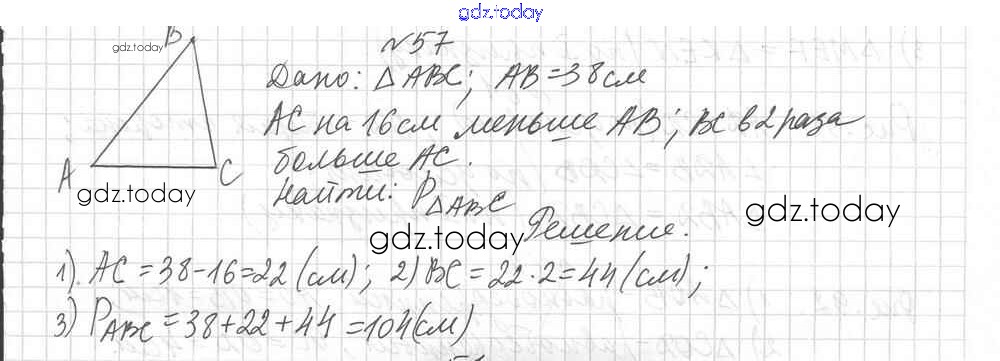 gdz.today
B
gdz.today
№57
Дано: △ABC; AB=38см
AC на 16см меньше AB; BC в 2 раза
больше AC.
A
C
gdz.today
Найти: P△ABC
gdz.today
gdz.today
Решение.
1). AC = 38-16=22 (см); 2) BC = 22·2=44 (см);
3) PABC = 38+22+44 =104(см)